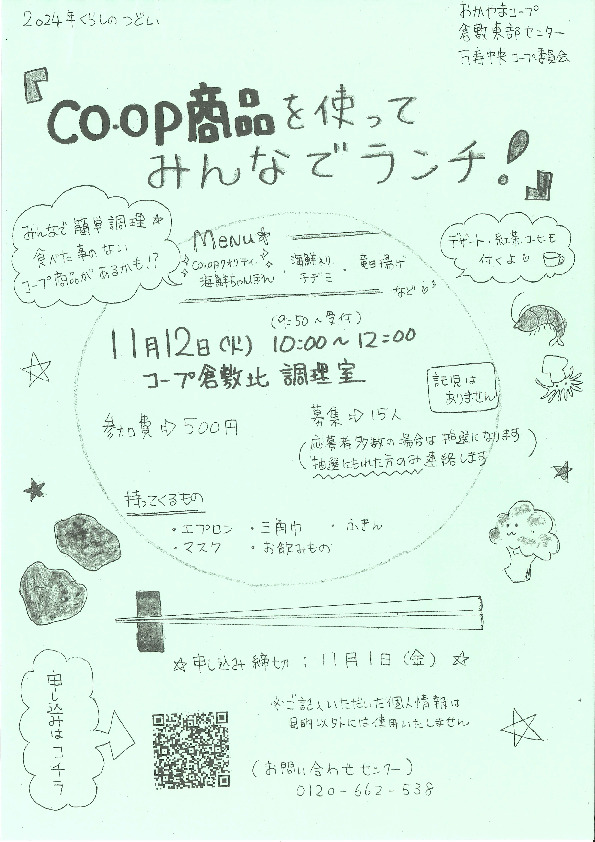 2024年くらしのつどい
おかやまコープ
倉敷東部センター
万寿中央コープ委員会
『CO・OP商品を使って
みんなでランチ！』
みんなで簡単調理☆
食べた事のない
コープ商品があるかも!?
Menu
CO・OPクオリティ
海鮮ちゃんぽん
海鮮入り
チヂミ
・鶏唐揚げ
など
デザート・紅茶・コーヒーも
付くよ
(9:50～受付)
11月12日(火) 10:00～12:00
コープ倉敷北 調理室
託児は
ありません
参加費⇨500円
募集⇨15人
(応募者多数の場合は抽選になります
抽選にもれた方のみ連絡します)
持ってくるもの
・エプロン ・三角巾 ・ふきん
・マスク ・お飲みもの
☆申し込み締切：11月1日(金)☆
申し込みはコチラ
※ご記入いただいた個人情報は
目的以外には使用いたしません
(お問い合わせセンター)
0120-662-538